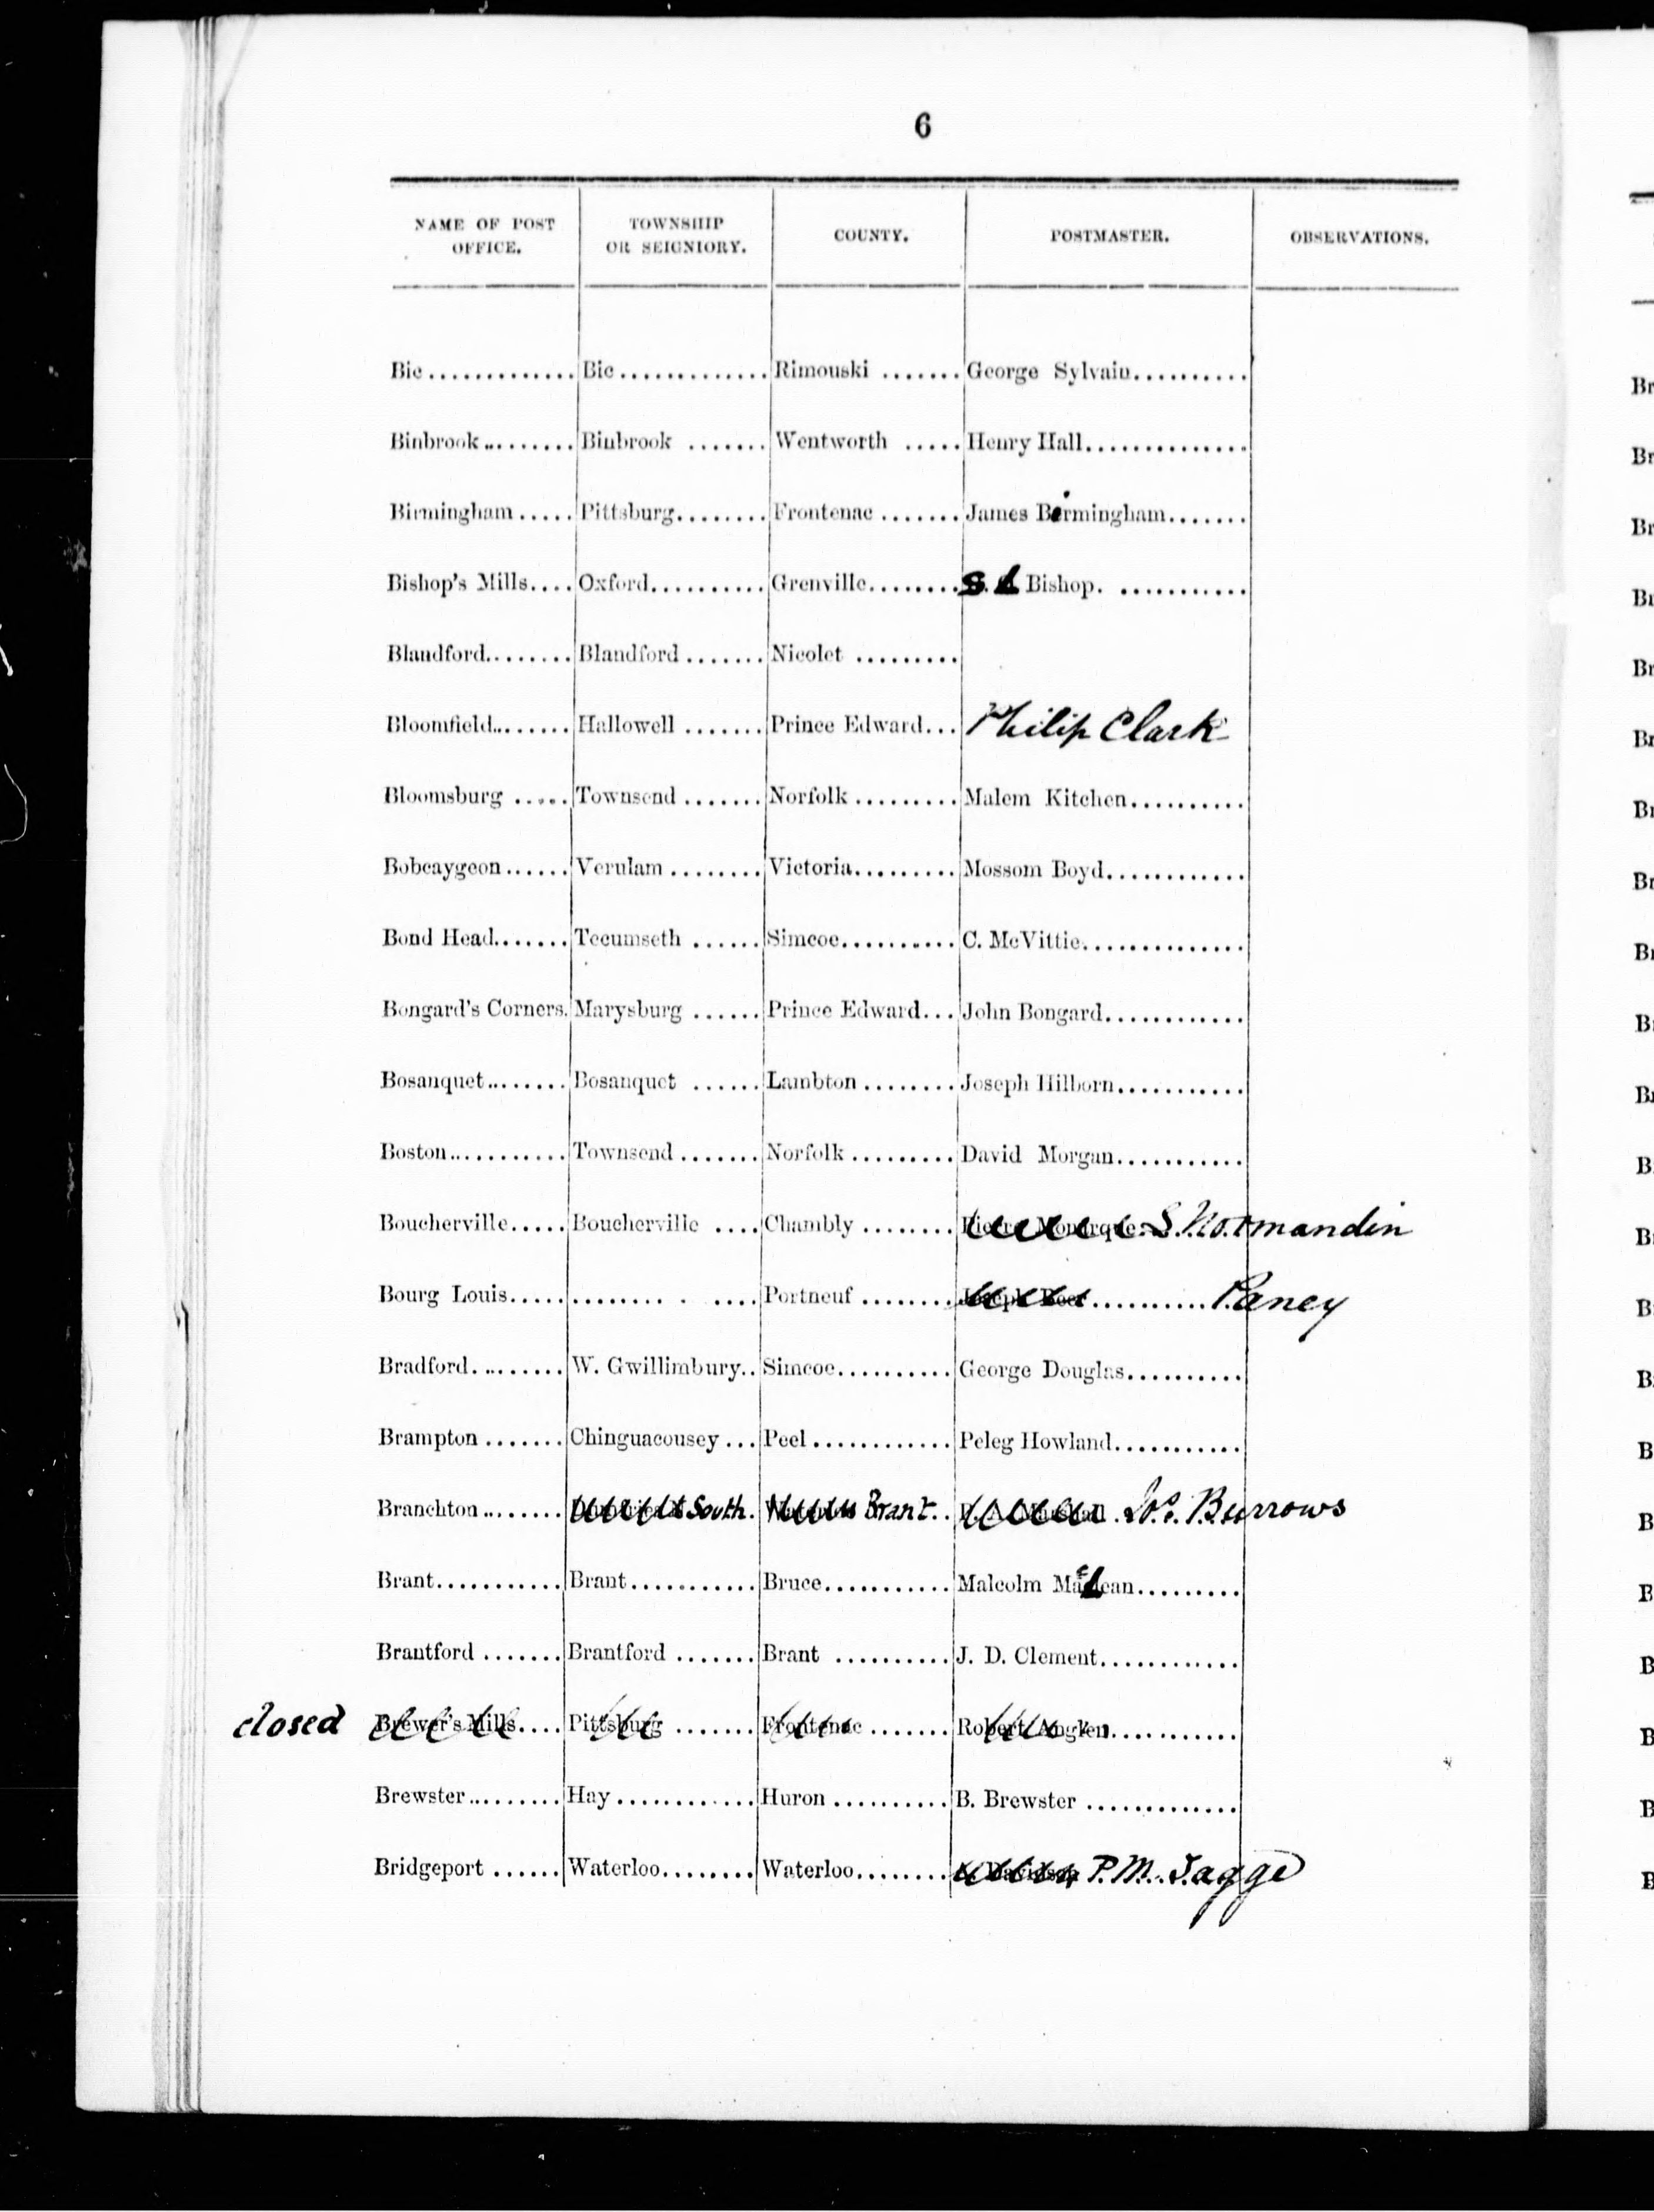 6
NAME OF POST OFFICE. TOWNSHIP OR SEIGNIORY. COUNTY. POSTMASTER. OBSERVATIONS.
Bic............. Bic............. Rimouski ....... George Sylvain..........
Binbrook......... Binbrook ....... Wentworth ..... Henry Hall..............
Birmingham..... Pittsburg........ Frontenac ....... James Birmingham.......
Bishop's Mills.... Oxford.......... Grenville........ S. L Bishop. ...........
Blandford........ Blandford....... Nicolet .........
Bloomfield........ Hallowell ....... Prince Edward... Philip Clark
Bloomsburg ..... Townsend ....... Norfolk ......... Malem Kitchen..........
Bobcaygeon...... Verulam ........ Victoria......... Mossom Boyd............
Bond Head....... Tecumseth ...... Simcoe.......... C. McVittie..............
Bongard's Corners. Marysburg ...... Prince Edward... John Bongard............
Bosanquet........ Bosanquet ...... Lambton ........ Joseph Hilborn...........
Boston........... Townsend ....... Norfolk ......... David Morgan...........
Boucherville..... Boucherville .... Chambly ........ Pierre Monarque. S. Normandin
Bourg Louis..... ........ . .... Portneuf ........ Joseph ........... Paney
Bradford......... W. Gwillimbury.. Simcoe.......... George Douglas..........
Brampton ....... Chinguacousey ... Peel............ Peleg Howland...........
Branchton........ South. Brant.. Burrows
Brant........... Brant........... Bruce........... Malcolm McLean.........
Brantford ....... Brantford ....... Brant .......... J. D. Clement............
closed Brewer's Mills.... Pittsburg ....... Frontenac ....... Robert Anglen...........
Brewster......... Hay............. Huron .......... B. Brewster .............
Bridgeport ...... Waterloo........ Waterloo........ P. M. Tagge
Br
Br
Br
Br
Br
Br
Br
Br
Br
B
B
B
B
B
B
B
B
B
B
B
B
B